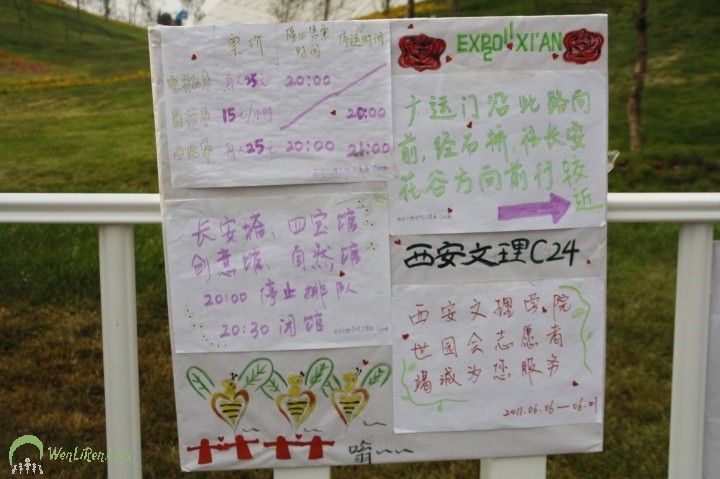 票价 停止售票时间 停运时间
每人25元 20:00
15元/小时 20:00
每人25元 20:00 21:00
长安塔、四宝馆
创意馆、自然馆
20:00 停止排队
20:30 闭馆
嗡
EXPO2011 XI'AN
广运门沿此路向
前,经石桥,往长安
花谷方向前行较
近
西安文理C24
西安文理学院
世园会志愿者
竭诚为您服务
2011.06.06—06.21
WenLiRen